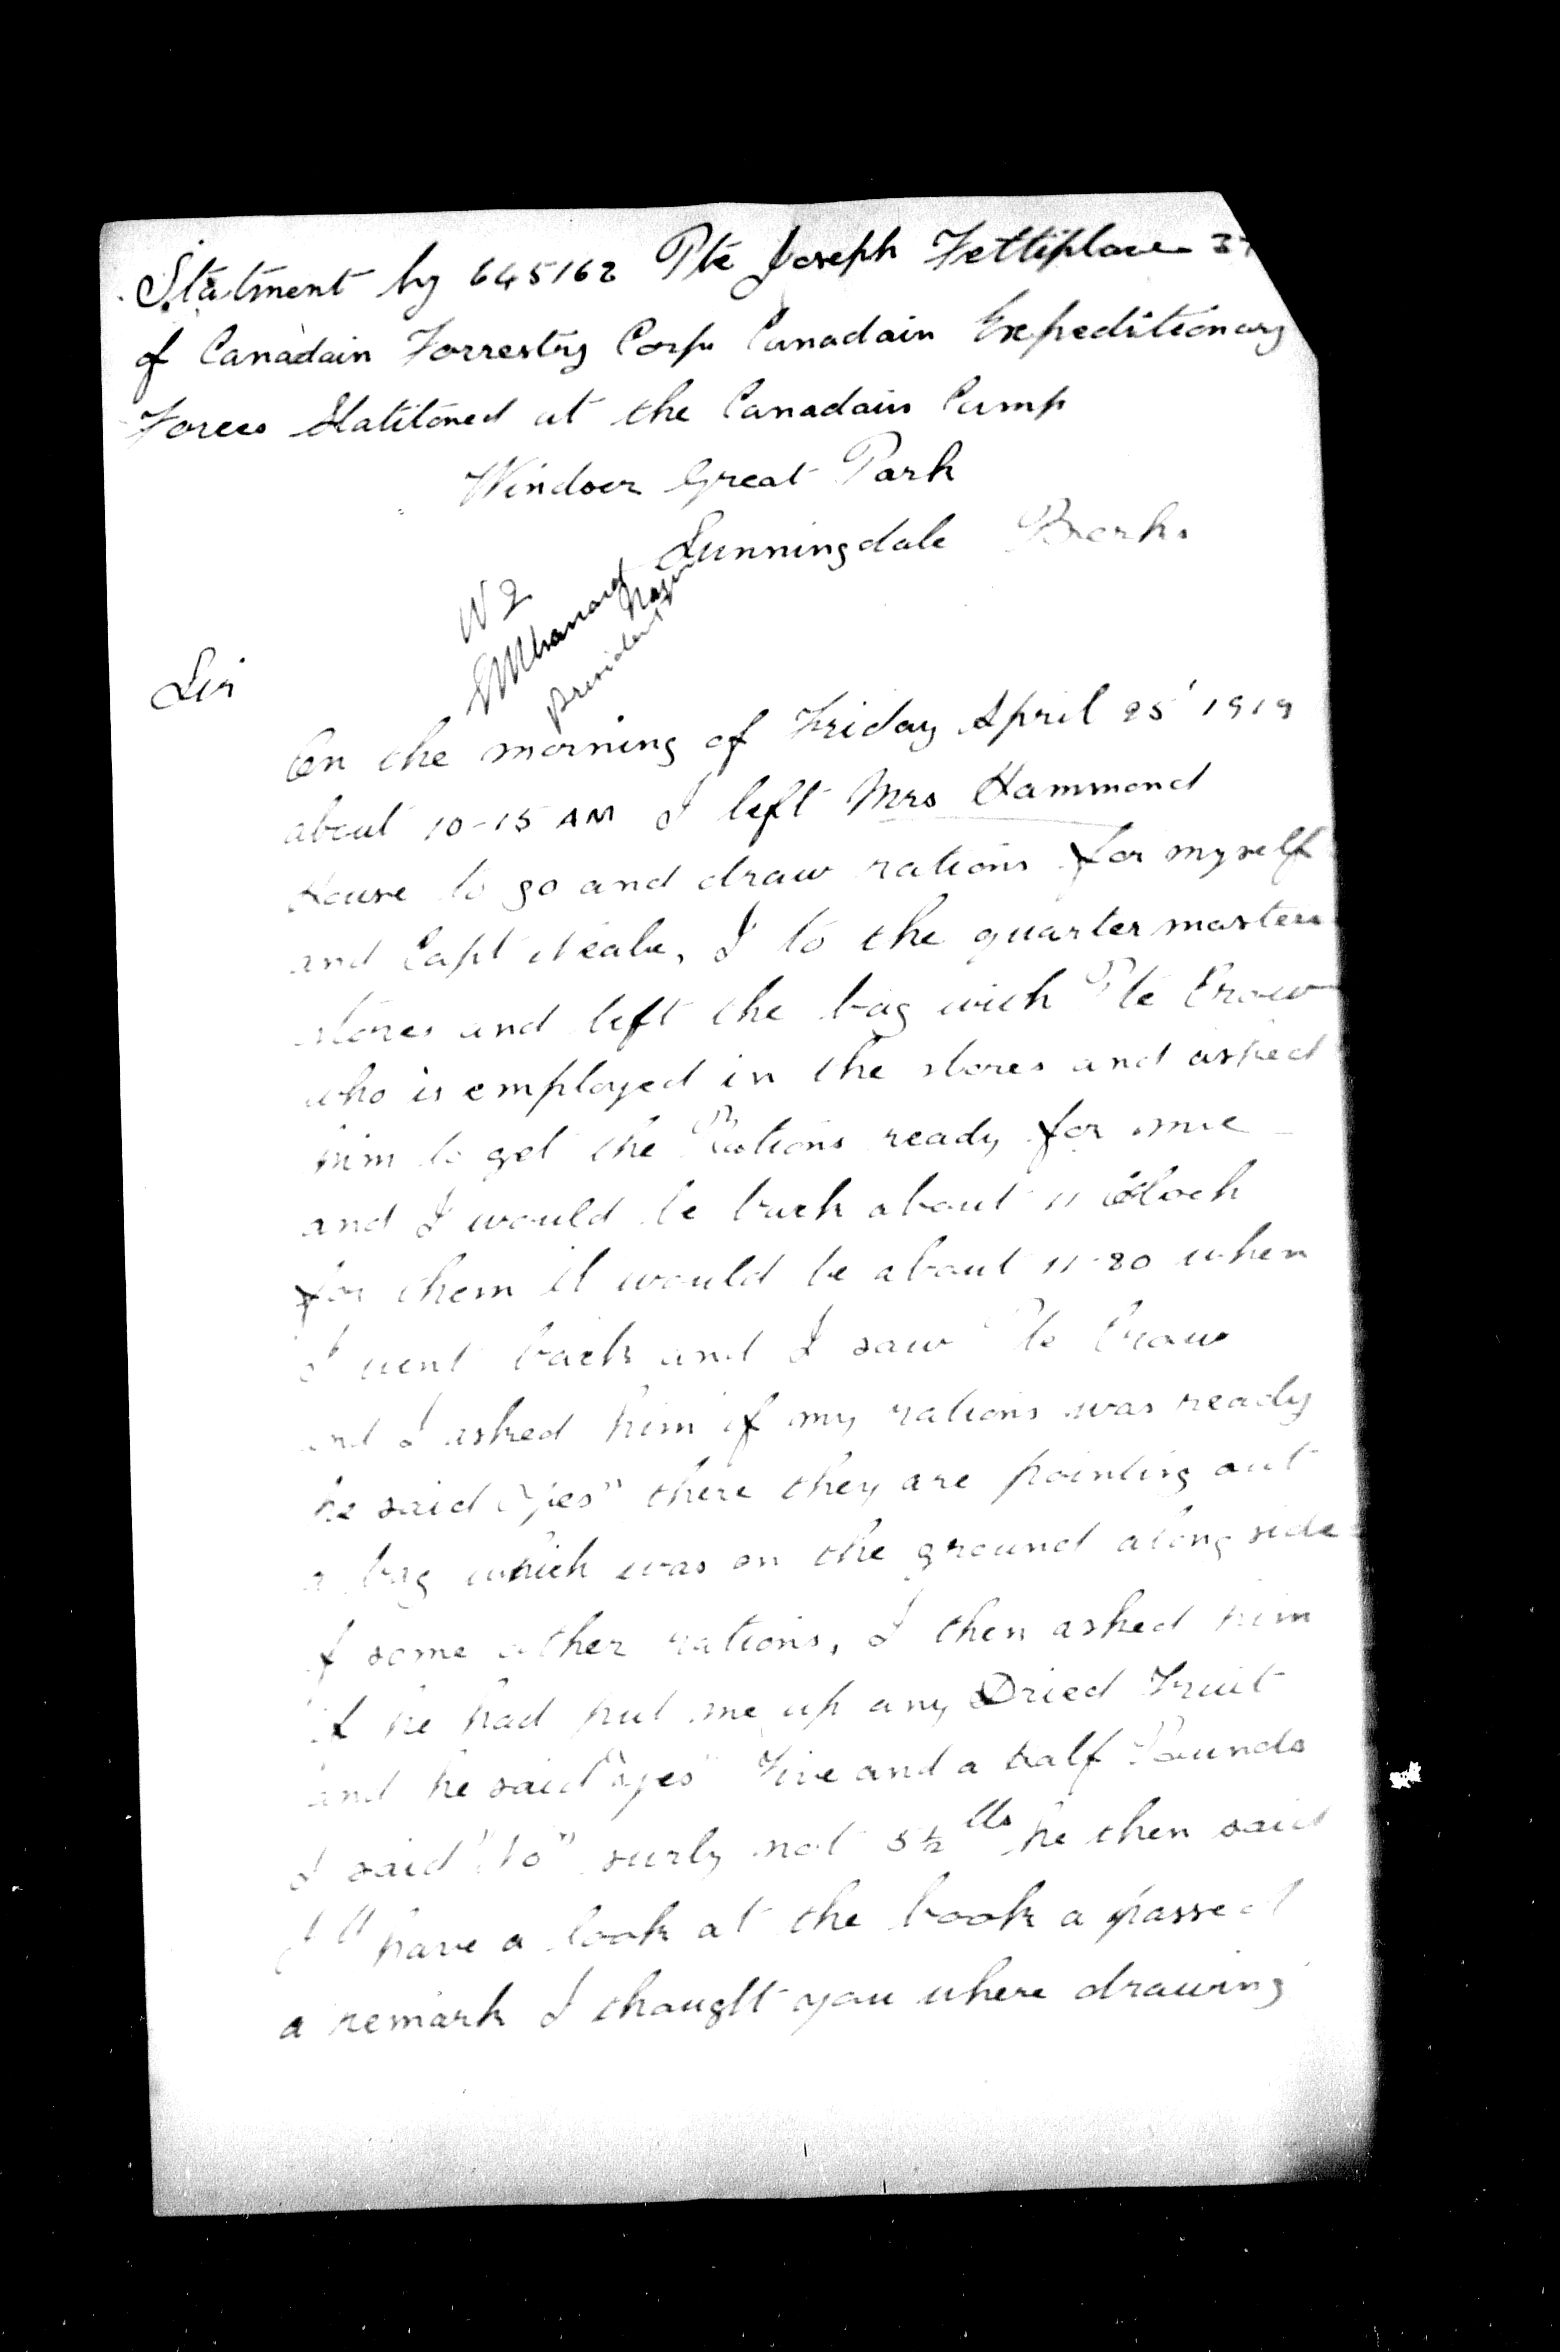 Statment by 645162 Pte Joseph Fettiplace 37
of Canadain Forrestry Corps Canadain Expeditionary
Forces Statitoned at the Canadain Camp
Windsor Great Park
Sunningdale Berks
President
Sir
On the morning of Friday April 25' 1919
about 10-15 AM I left Mrs Hammond
House to go and draw rations for myself
and Capt Neale, I to the quartermasters
stores and left the bag with Pte Crow
who is employed in the stores and asked
him to get the Rations ready for me
and I would be back about 11 Oclock
for them it would be about 11-20 when
I went back and I saw Pte Crow
and I asked him if my rations was ready
he said "yes" there they are pointing out
a bag which was on the ground along side
of some other rations, I then asked him
if he had put me up any Dried Fruit
and he said "yes" Five and a half Pounds
I said "No" surly not 5½ lbs he then said
I'll have a look at the book a passed
a remark I thought you where drawing